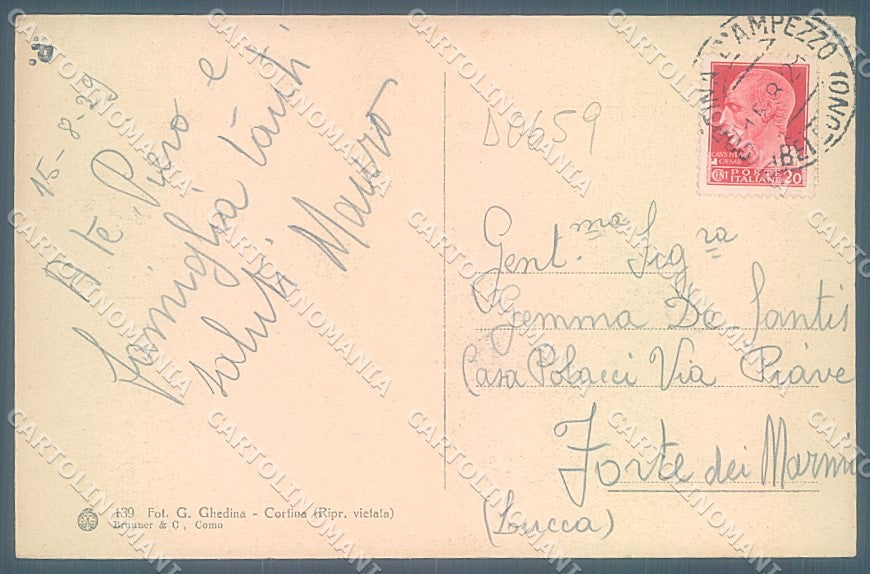 15-8-29
A te Piero e
famiglia tanti
saluti Mauro
D0659
CENT POSTE ITALIANE 20
Gent.ma Sig.ra
Gemma De Santis
Casa Polacci Via Piave
Forte dei Marmi
(Lucca)
139 Fot. G. Ghedina - Cortina (Ripr. vietata)
Brunner & C, Como
CARTOLINOMANIA